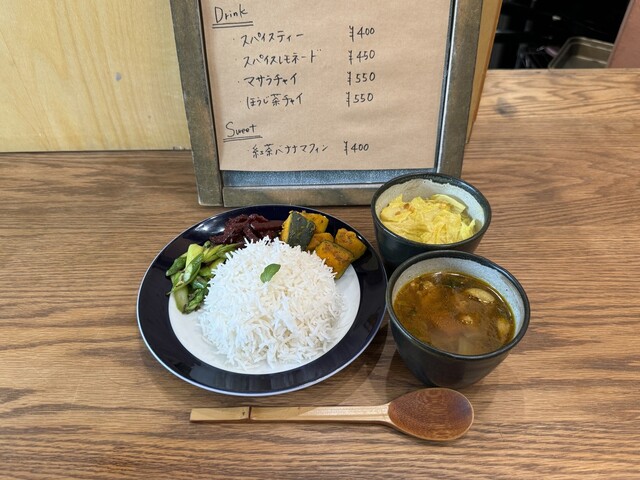 Drink
・スパイスティー ¥400
・スパイスレモネード ¥450
・マサラチャイ ¥550
・ほうじ茶チャイ ¥550
Sweet
・紅茶バナナマフィン ¥400